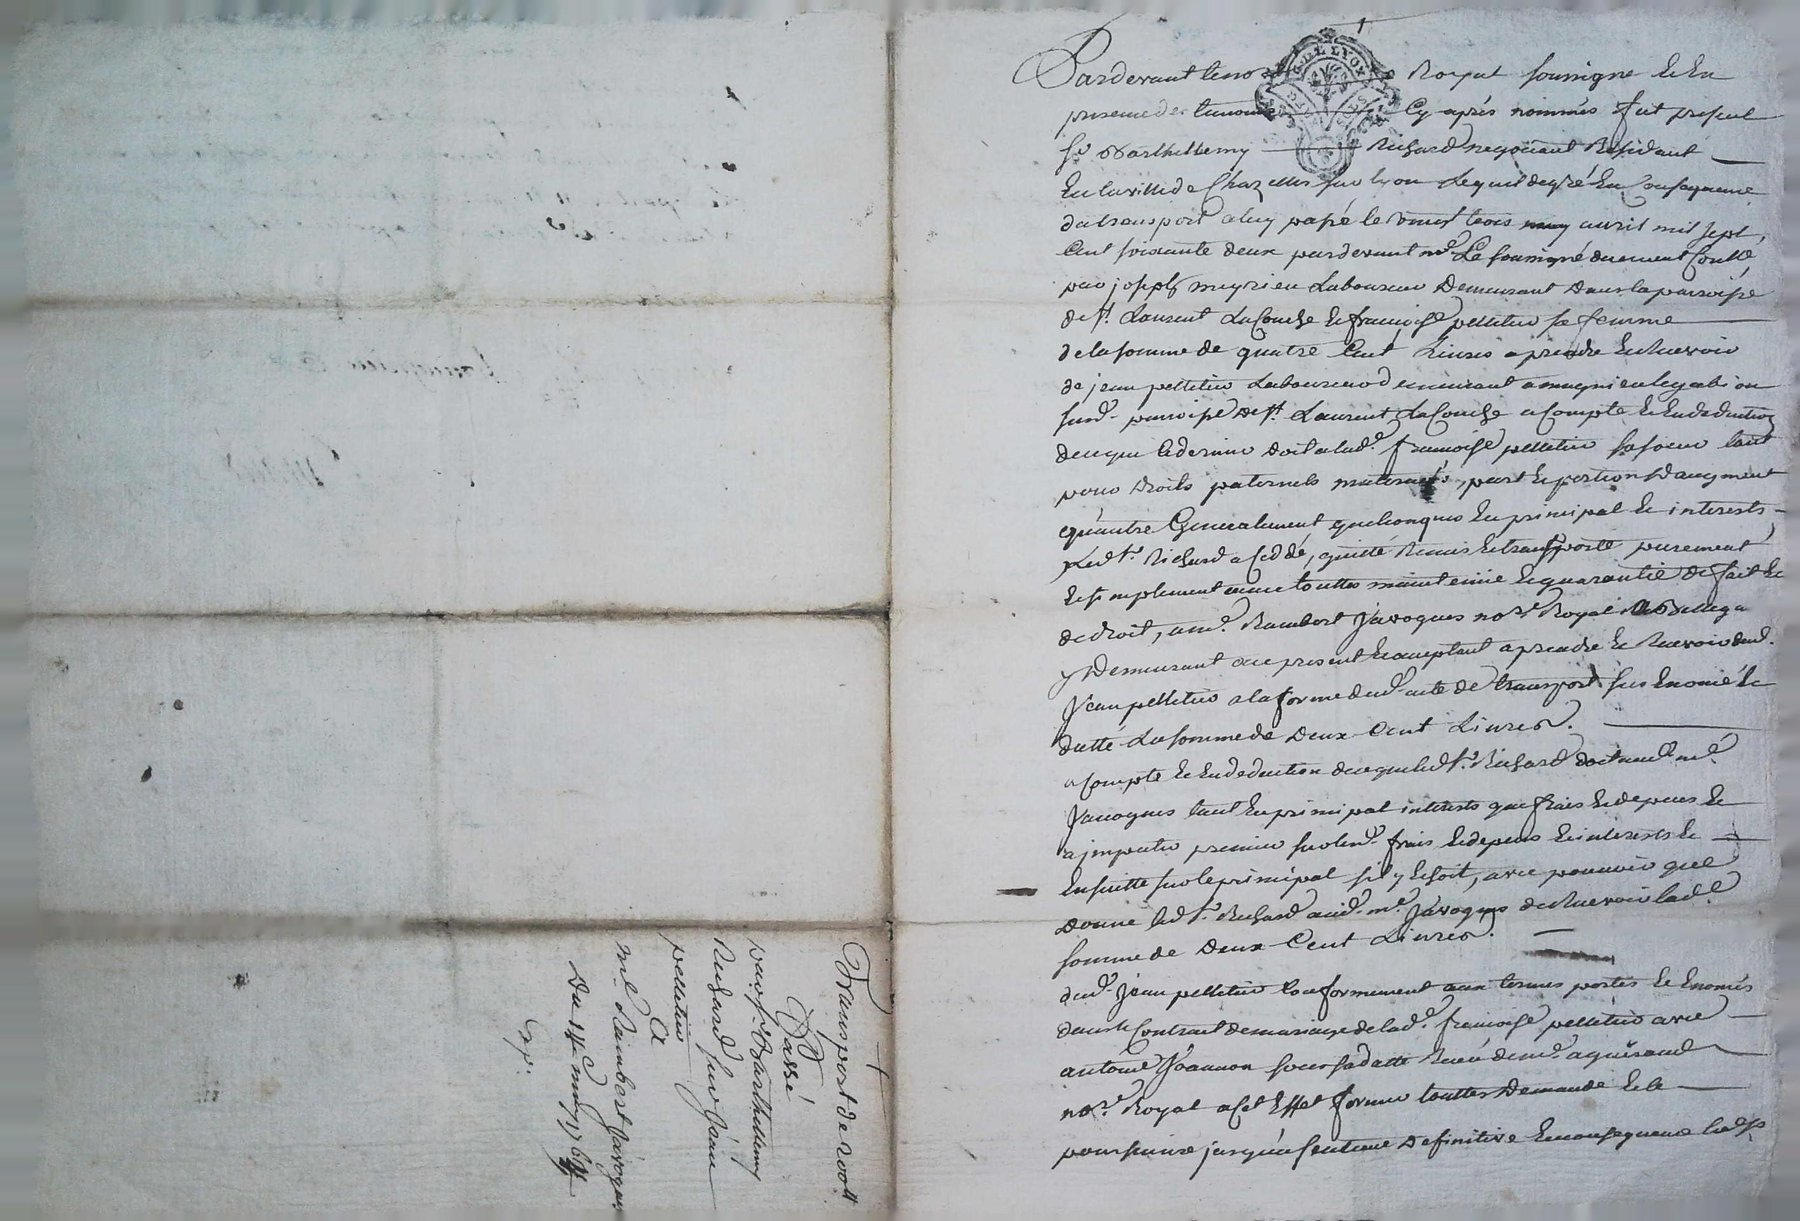 Pardevant le no Royal soussigné et En
presence des temoins Cy aprés nommés fut present
Sr Barthellemy Richard negotiant Residant
En la ville de Chazelles sur lyon Lequel de gré En Consequence
du transport a luy passé le vingt trois avril mil sept
Cent soixante deux pardevant me Le soussigné duement Conllé
par joseph meyrieu Laboureur Demeurant Dans la paroisse
de St. Laurent La Conche et francoise pelletier sa femme
de la somme de quatre Cent Livres a prendre Et Recevoir
de jean pelletier Laboureur demeurant a magnieu
susd. paroisse De St. Laurent La Conche a Compte Et En deduction
de ce que Ce dernier Doit a lad. francoise pelletier sa soeur tant
pour Droits paternels maternels, part et portion d'augment
qu'autre Generalement quelconques En principal Et interests
Led Sr. Richard a Ceddé, quitté Remis Et transporté purement
Et simplement avec touttes maintenüe Et guarantie de fait Et
de droit, a me. Rambert Javogues nore. Royal a Bellega
y Demeurant Et acceptant a prendre Et Recevoir dud.
Jean pelletier a la forme dud. acte de transport sus Enoncé Et
datté La somme de Deux Cent Livres.
a Compte Et En deduction de ce que led Sr. Richard doit aud. me.
Javogues tant En principal interests que frais Et depens Et
a jmputer premier sur les d. frais Et depens Et interests Et
Ensuitte sur le principal sil y Echoit, avec pouvoir que
Donne led Sr. Richard aud. me. Javogues de Recevoir lad.
somme de Deux Cent Livres.
dud. Jean pelletier Conformement aux termes portés Et Enoncés
dans le Contract de mariage de lad. francoise pelletier avec
antoine Joannon sous sa datte Receu de me. aguiraud
nore. Royal a Cet Effet former touttes Demande Et le
poursuivre jusqu'a sentence Definitive En consequence led Sr
Transport de 200 ll
Passé
par sr. Barthellemy
Richard sur Jean
pelletier
a
me. Raimbert Javogues
Du 14e may 1764